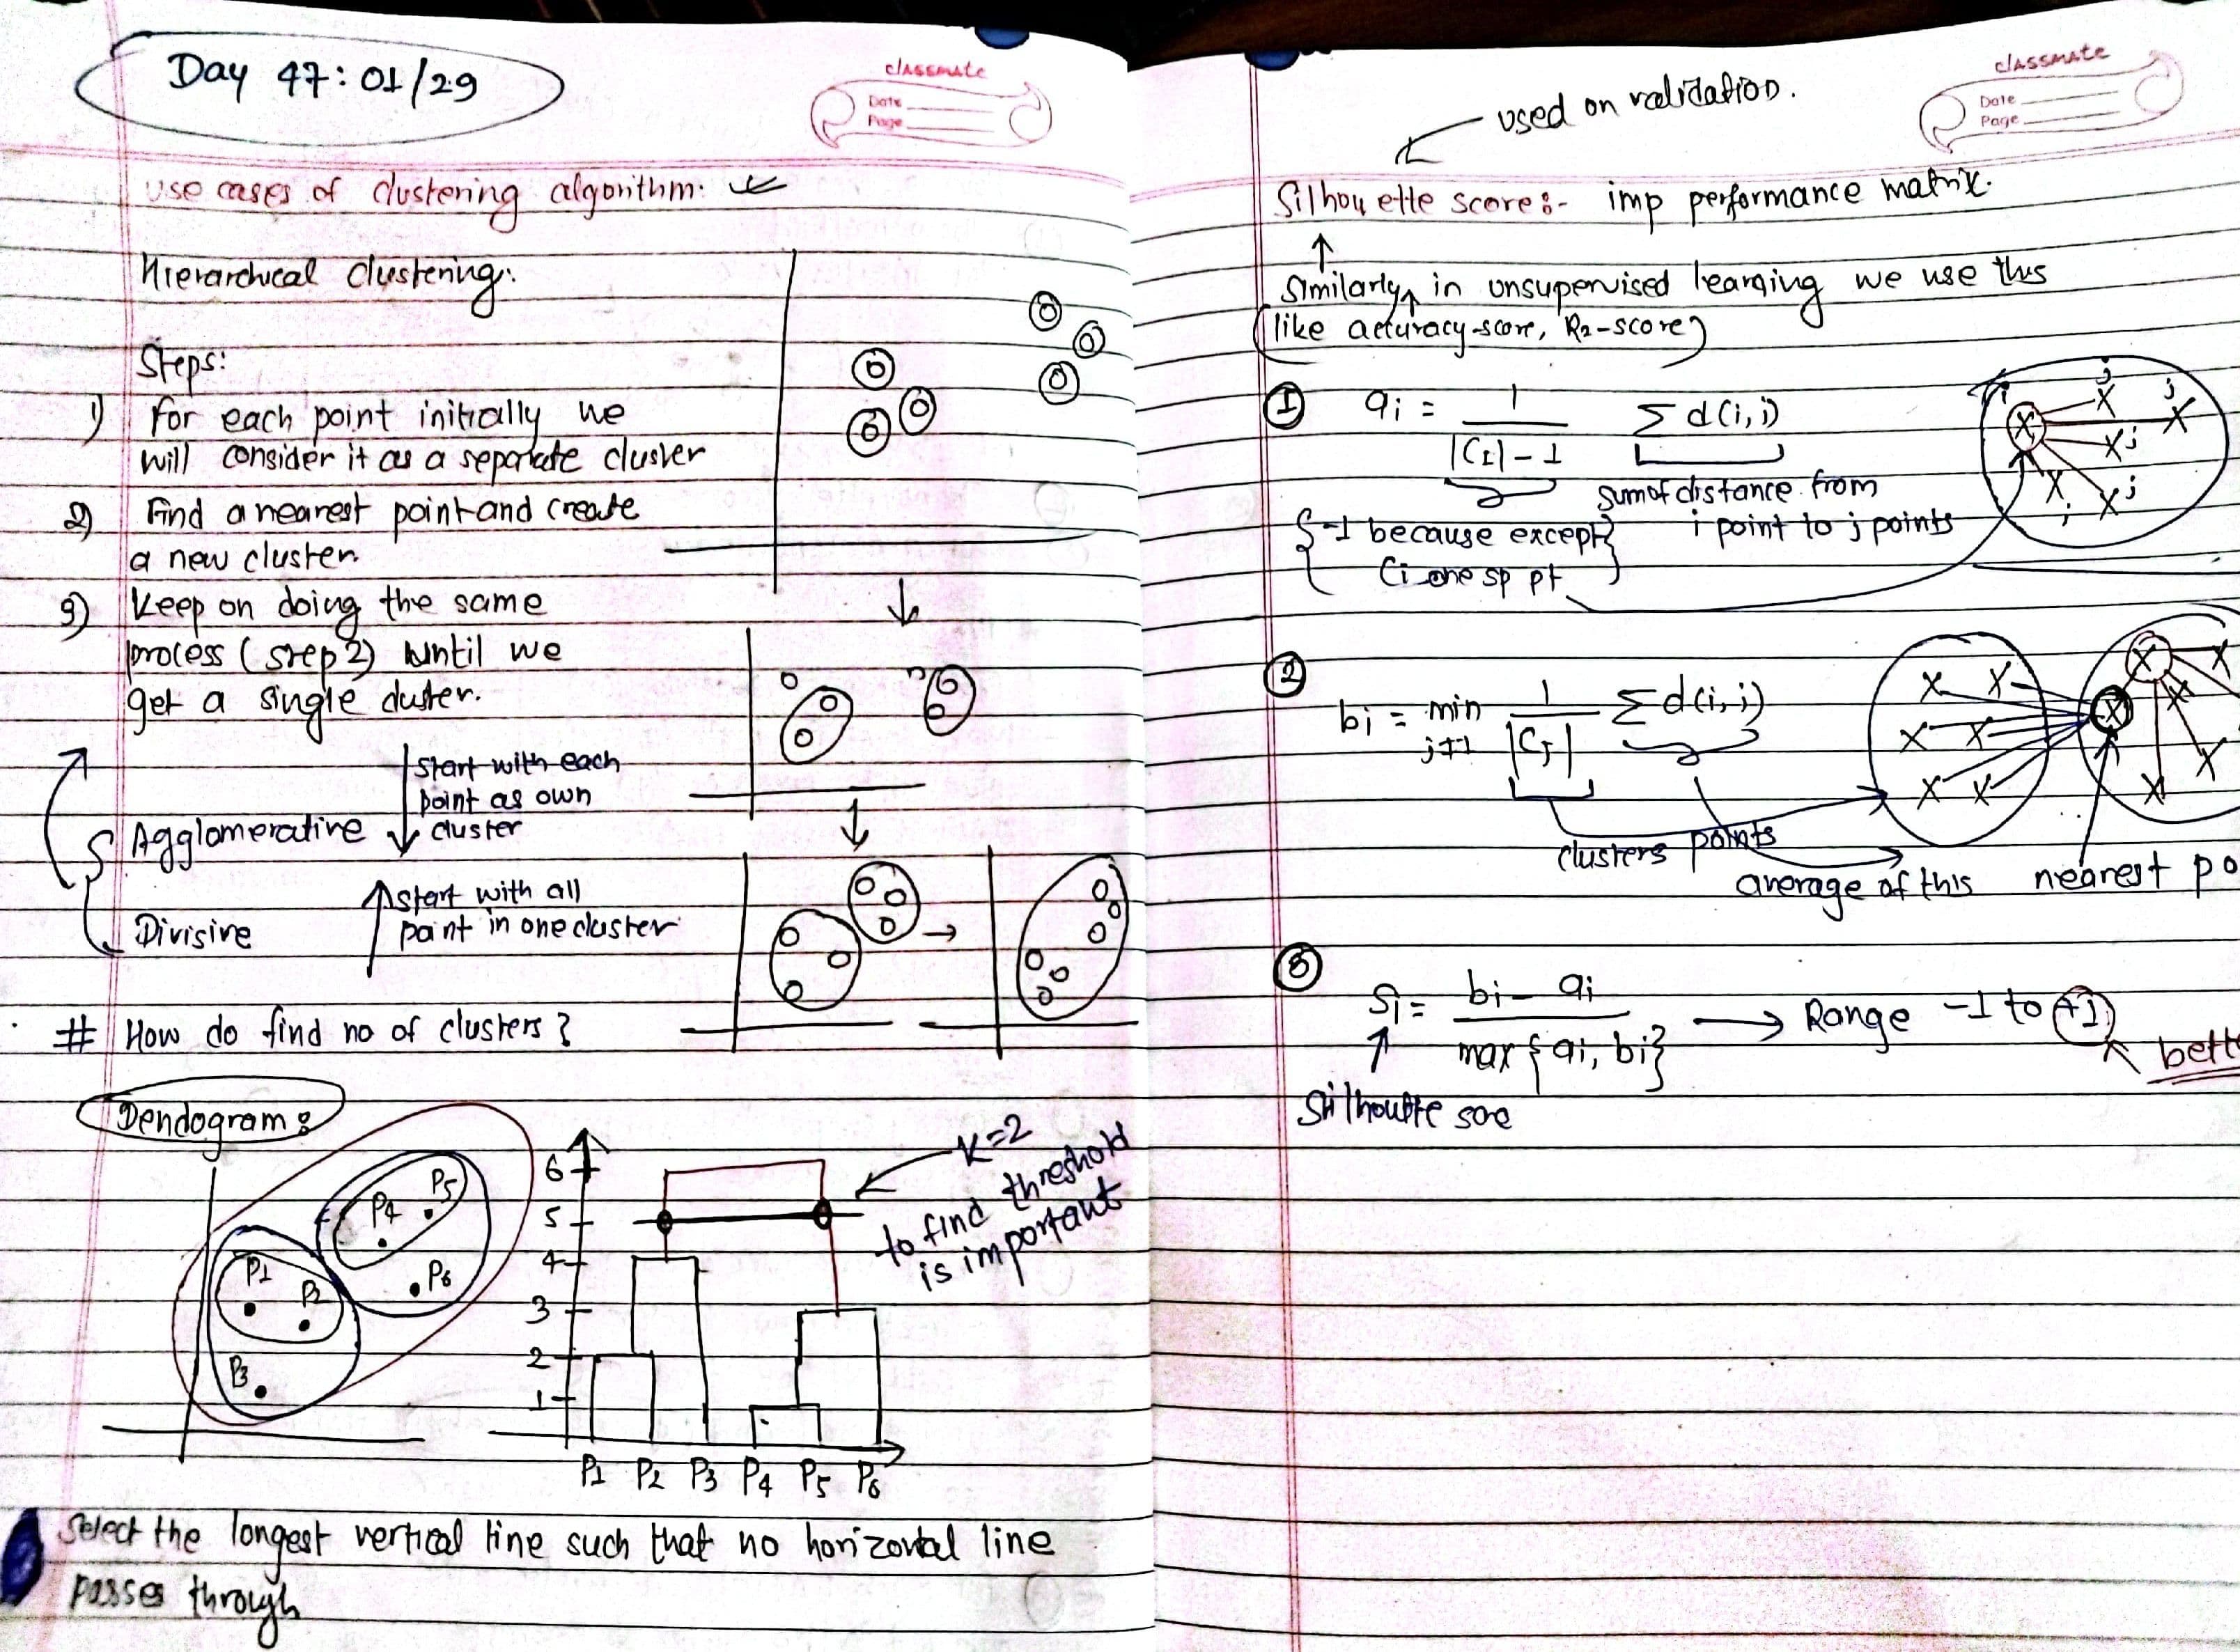 Day 47: 01/29
classmate
Date
Page
use cases of clustering algorithm:
Hierarchical clustering:
Steps:
1) For each point initially we
will consider it as a separate cluster
2) Find a nearest point and create
a new cluster.
3) Keep on doing the same
process (step 2) until we
get a single cluster.
Agglomerative
start with each
point as own
cluster
Divisive
start with all
point in one cluster
# How do find no of clusters?
Dendogram:
P1
P2
P3
P4
P5
P6
6
5
4
3
2
1
P1 P2 P3 P4 P5 P6
K=2
to find threshold
is important
Select the longest vertical line such that no horizontal line
passes through
classmate
Date
Page
used on validation.
Silhouette score:- imp performance matrix.
Similarly in unsupervised learning we use this
(like accuracy-score, R2-score)
① ai = 1 / |CI| - 1 Σ d(i,j)
sum of distance from
i point to j points
{-1 because except}
Ci one sp pt
i
j
j
j
j
j
② bi = min j≠1 1 / |CJ| Σ d(i,j)
clusters points
average of this
nearest po
③ Si = bi - ai / max {ai, bi} → Range -1 to +1
bett
Silhoutte sore